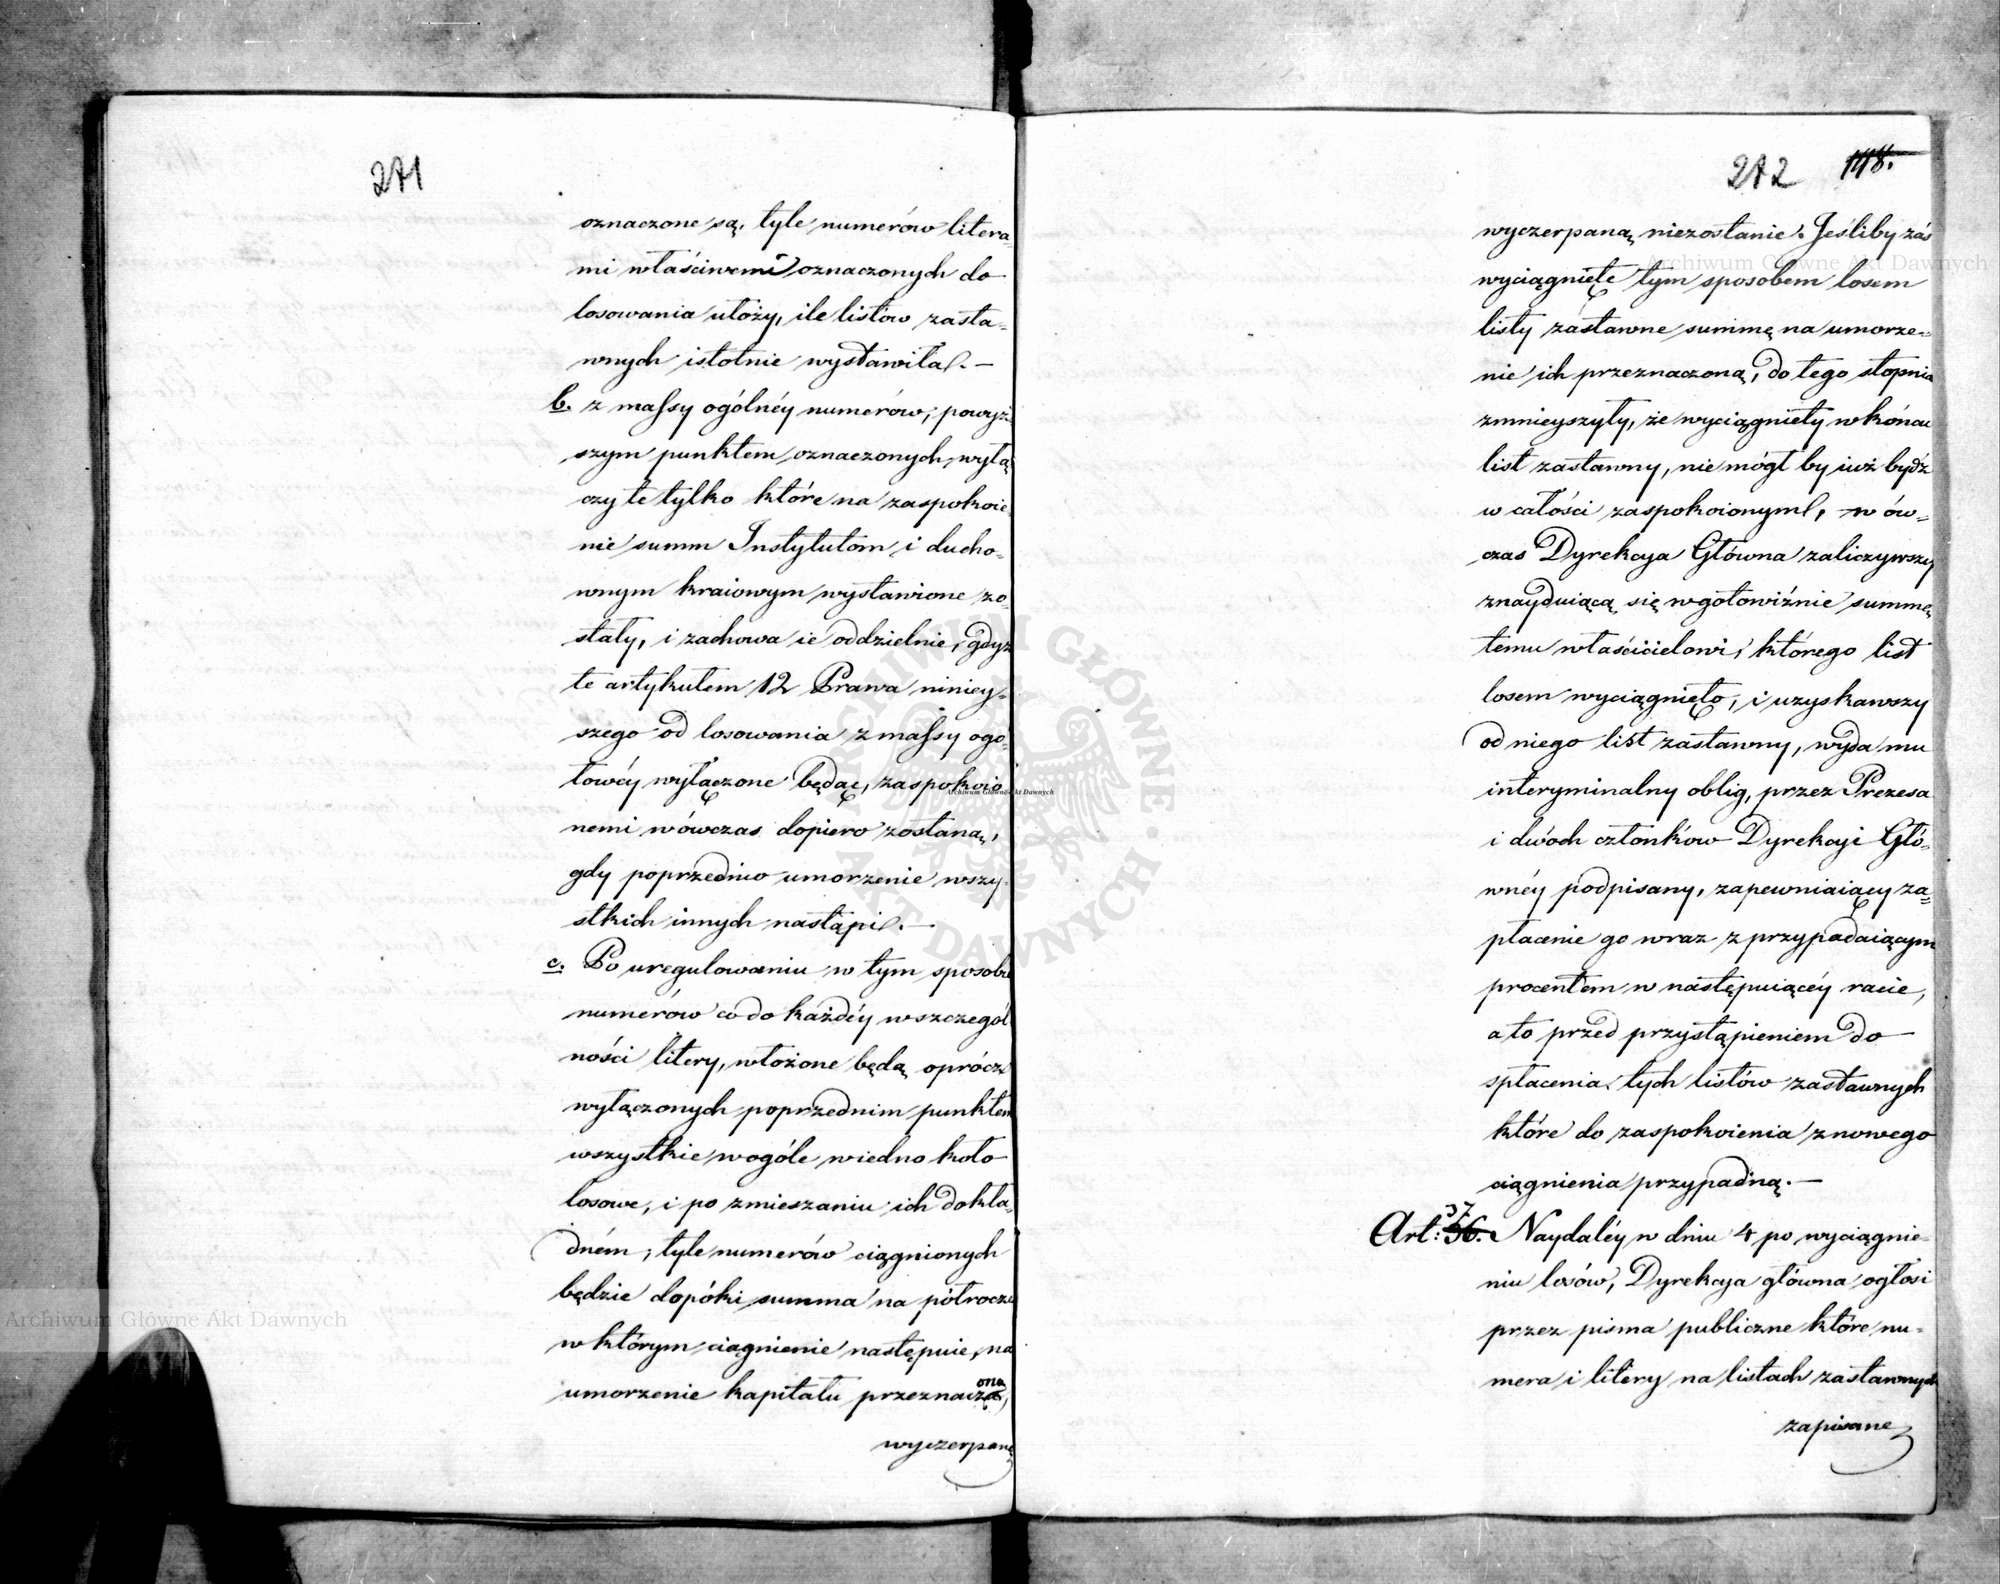 271
oznaczone są, tyle numerów litera-
mi właściwemi oznaczonych do
losowania ułoży, ile listów zasta-
wnych istotnie wystawiła. —
b. z massy ogólnéy numerów, powyż-
szym punktem oznaczonych, wyłą
czy te tylko które na zaspokoie
nie summ Instytutom i ducho-
wnym kraiowym wystawione zo-
stały, i zachowa ie oddzielnie, gdyż
te artykułem 12 Prawa niniey-
szego od losowania z massy ogó-
łowéy wyłączone będąc, zaspokoio
nemi wówczas dopiero zostaną,
gdy poprzednio umorzenie wszy-
stkich innych nastąpi. —
c. Po uregulowaniu w tym sposobie
numerów co do każdéy w szczegól
ności litery, włożone będą oprócz
wyłączonych poprzednim punktem
wszystkie w ogóle w iedno koło
losowe, i po zmieszaniu ich dokła-
dném, tyle numerów ciągnionych
będzie dopóki summa na półrocze
w którym ciągnienie następuie, na
umorzenie kapitału przeznaczona,
wyczerpaną
272 118.
wyczerpaną niezostanie. Jeśliby zaś
wyciągnięte tym sposobem losem
listy zastawne summę na umorze-
nie ich przeznaczoną, do tego stopnia
zmnieyszyły, że wyciągnięty w końcu
list zastawny, nie mógł by iuż bydź
w całości zaspokoionym, w ów-
czas Dyrekcya Główna zaliczywszy
znayduiącą się w gotowiźnie summę
temu właścicielowi, którego list
losem wyciągnięto, i uzyskawszy
od niego list zastawny, wyda mu
interyminalny oblig, przez Prezesa
i dwóch członków Dyrekcyi Głó-
wnéy podpisany, zapewniaiący za-
płacenie go wraz z przypadaiącym
procentem w następuiącéy racie,
a to przed przystąpieniem do
spłacenia tych listów zastawnych
które do zaspokoienia z nowego
ciągnienia przypadną. —
37
Art: 36. Naydaléy w dniu 4 po wyciągnie-
niu losów, Dyrekcya główna ogłosi
przez pisma publiczne które nu-
mera i litery na listach zastawnych
zapisane
Archiwum Główne Akt Dawnych
Archiwum Główne Akt Dawnych
Archiwum Główne Akt Dawnych
ARCHIWUM GŁÓWNE AKT DAWNYCH